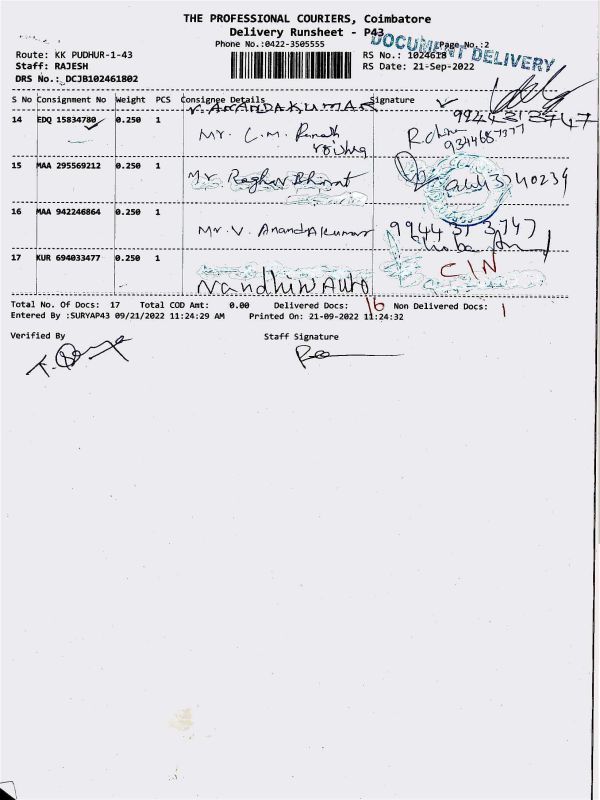 THE PROFESSIONAL COURIERS, Coimbatore
Delivery Runsheet - P43
Phone No.:0422-3505555
DOCUMENT DELIVERY
Page No.:2
Route: KK PUDHUR-1-43
RS No.: 1024618
Staff: RAJESH
RS Date: 21-Sep-2022
DRS No.: DCJB102461802
S No Consignment No Weight PCS Consignee Details Signature
V. ANANDAKUMAR
14 EDQ 15834780 0.250 1 Mr. C.M.
15 MAA 295569212 0.250 1 Mr Raghav Bharat
16 MAA 942246864 0.250 1 Mr. V. Anandakumar 99443 13747
17 KUR 694033477 0.250 1 Nandhini Auto CIN
Total No. Of Docs: 17 Total COD Amt: 0.00 Delivered Docs: 16 Non Delivered Docs: 1
Entered By :SURYAP43 09/21/2022 11:24:29 AM Printed On: 21-09-2022 11:24:32
Verified By Staff Signature